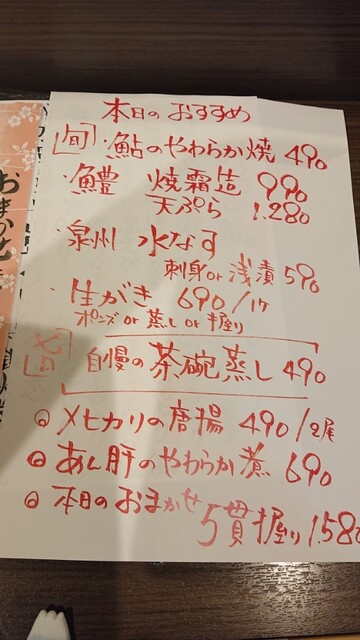 本日のおすすめ
旬 ・鮎のやわらか焼 490
・鱧 焼霜造 990
天ぷら 1.280
・泉州 水なす
刺身or浅漬 590
・生がき 690/1ケ
ポンズor蒸しor握り
自慢の茶碗蒸し 490
◎メヒカリの唐揚 490/2尾
◎あん肝のやわらか煮 690
◎本日のおまかせ
5貫握り 1.580
おまかせ